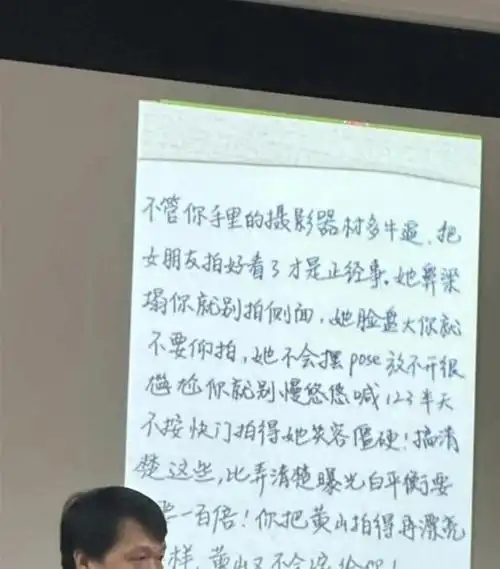 不管你手里的摄影器材多牛逼、把
女朋友拍好看了才是正经事。她鼻梁
塌你就别拍侧面,她脸盘大你就
不要仰拍,她不会摆pose放不开很
尴尬你就别慢悠悠喊123半天
不按快门拍得她笑容僵硬!搞清
楚这些,比弄清楚曝光白平衡要
一百倍!你把黄山拍得再漂亮
样,黄山又不会